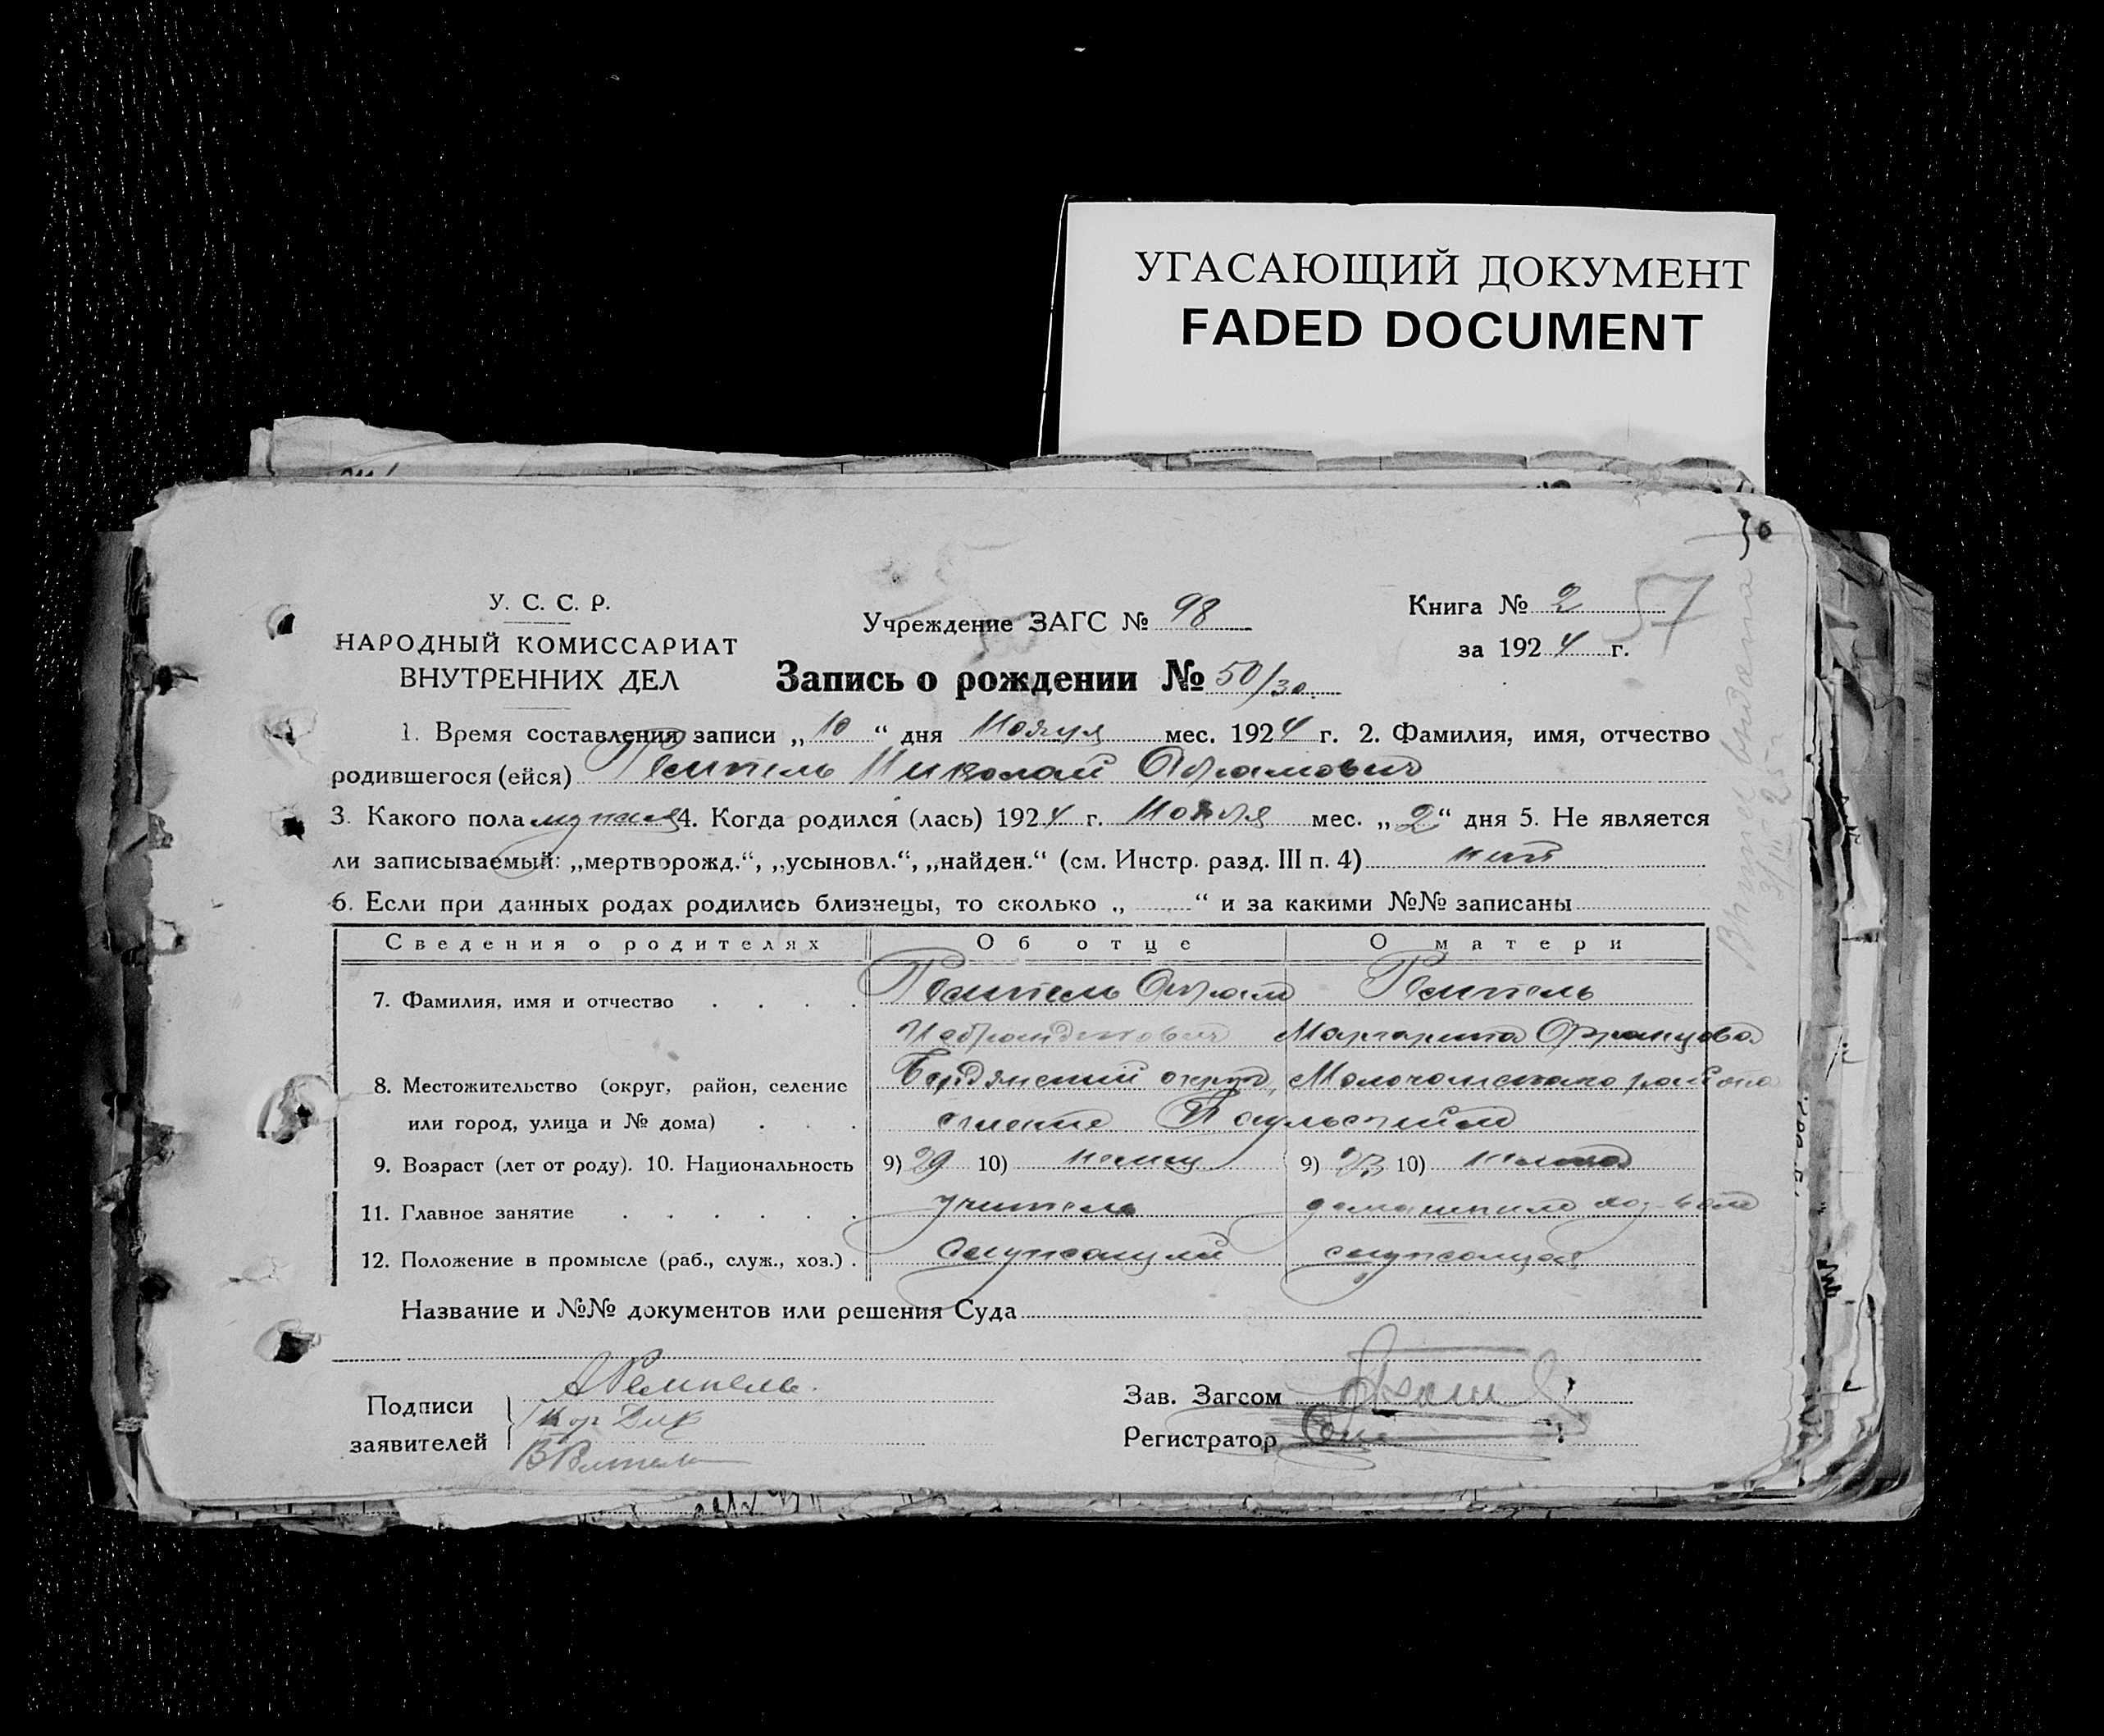 УГАСАЮЩИЙ ДОКУМЕНТ
FADED DOCUMENT
У. С. С. Р.
НАРОДНЫЙ КОМИССАРИАТ
ВНУТРЕННИХ ДЕЛ
Учреждение ЗАГС № 98
Книга № 2
57
за 1924 г.
Запись о рождении № 50/30
1. Время составления записи „10“ дня Ноября мес. 1924 г. 2. Фамилия, имя, отчество
родившегося (ейся) Ремпель Николай Абрамович
3. Какого пола мужск 4. Когда родился (лась) 1924 г. Ноября мес. „2“ дня 5. Не является
ли записываемый: „мертворожд.“, „усыновл.“, „найден.“ (см. Инстр. разд. III п. 4) нет
6. Если при данных родах родились близнецы, то сколько „ “ и за какими №№ записаны
Сведения о родителях Об отце О матери
7. Фамилия, имя и отчество Ремпель Абрам Ремпель
Маргарита Францовна
8. Местожительство (округ, район, селение Бердянский округ, Молочанского района
или город, улица и № дома) Паульсгейм
9. Возраст (лет от роду). 10. Национальность 9) 29 10) немец 9) 23 10) немка
11. Главное занятие учитель домашним хоз-вом
12. Положение в промысле (раб., служ., хоз.) служащий служащая
Название и №№ документов или решения Суда
Подписи
заявителей
АРемпель
Дик
Зав. Загсом
Регистратор
Выпись выдана